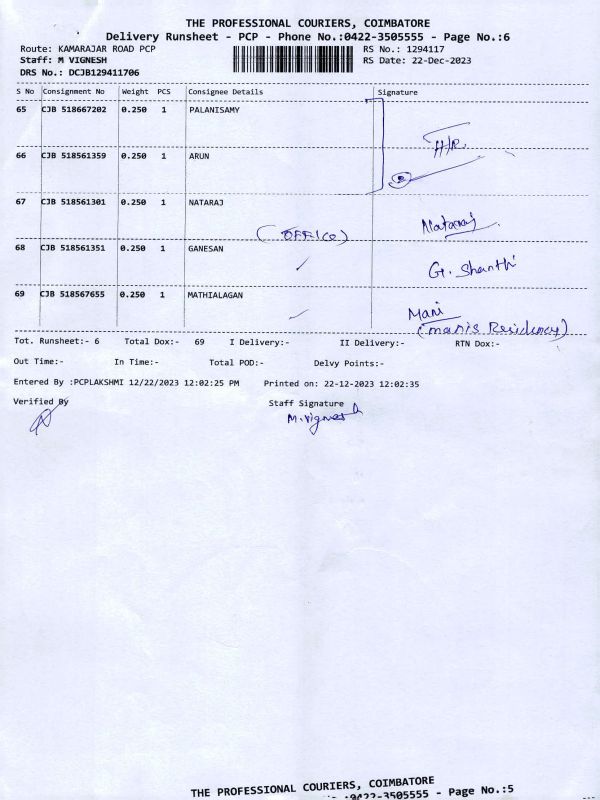 THE PROFESSIONAL COURIERS, COIMBATORE
Delivery Runsheet - PCP - Phone No.:0422-3505555 - Page No.:6
Route: KAMARAJAR ROAD PCP
RS No.: 1294117
Staff: M VIGNESH
RS Date: 22-Dec-2023
DRS No.: DCJB129411706
S No Consignment No Weight PCS Consignee Details Signature
65 CJB 518667202 0.250 1 PALANISAMY
H/R
66 CJB 518561359 0.250 1 ARUN
67 CJB 518561301 0.250 1 NATARAJ
Nataraj
(OFFICE)
68 CJB 518561351 0.250 1 GANESAN
G. Shanthi
69 CJB 518567655 0.250 1 MATHIALAGAN
Mani
(manis Residency)
Tot. Runsheet:- 6 Total Dox:- 69 I Delivery:- II Delivery:- RTN Dox:-
Out Time:- In Time:- Total POD:- Delvy Points:-
Entered By :PCPLAKSHMI 12/22/2023 12:02:25 PM Printed on: 22-12-2023 12:02:35
Verified By Staff Signature
M.Vignesh
THE PROFESSIONAL COURIERS, COIMBATORE
:0422-3505555 - Page No.:5